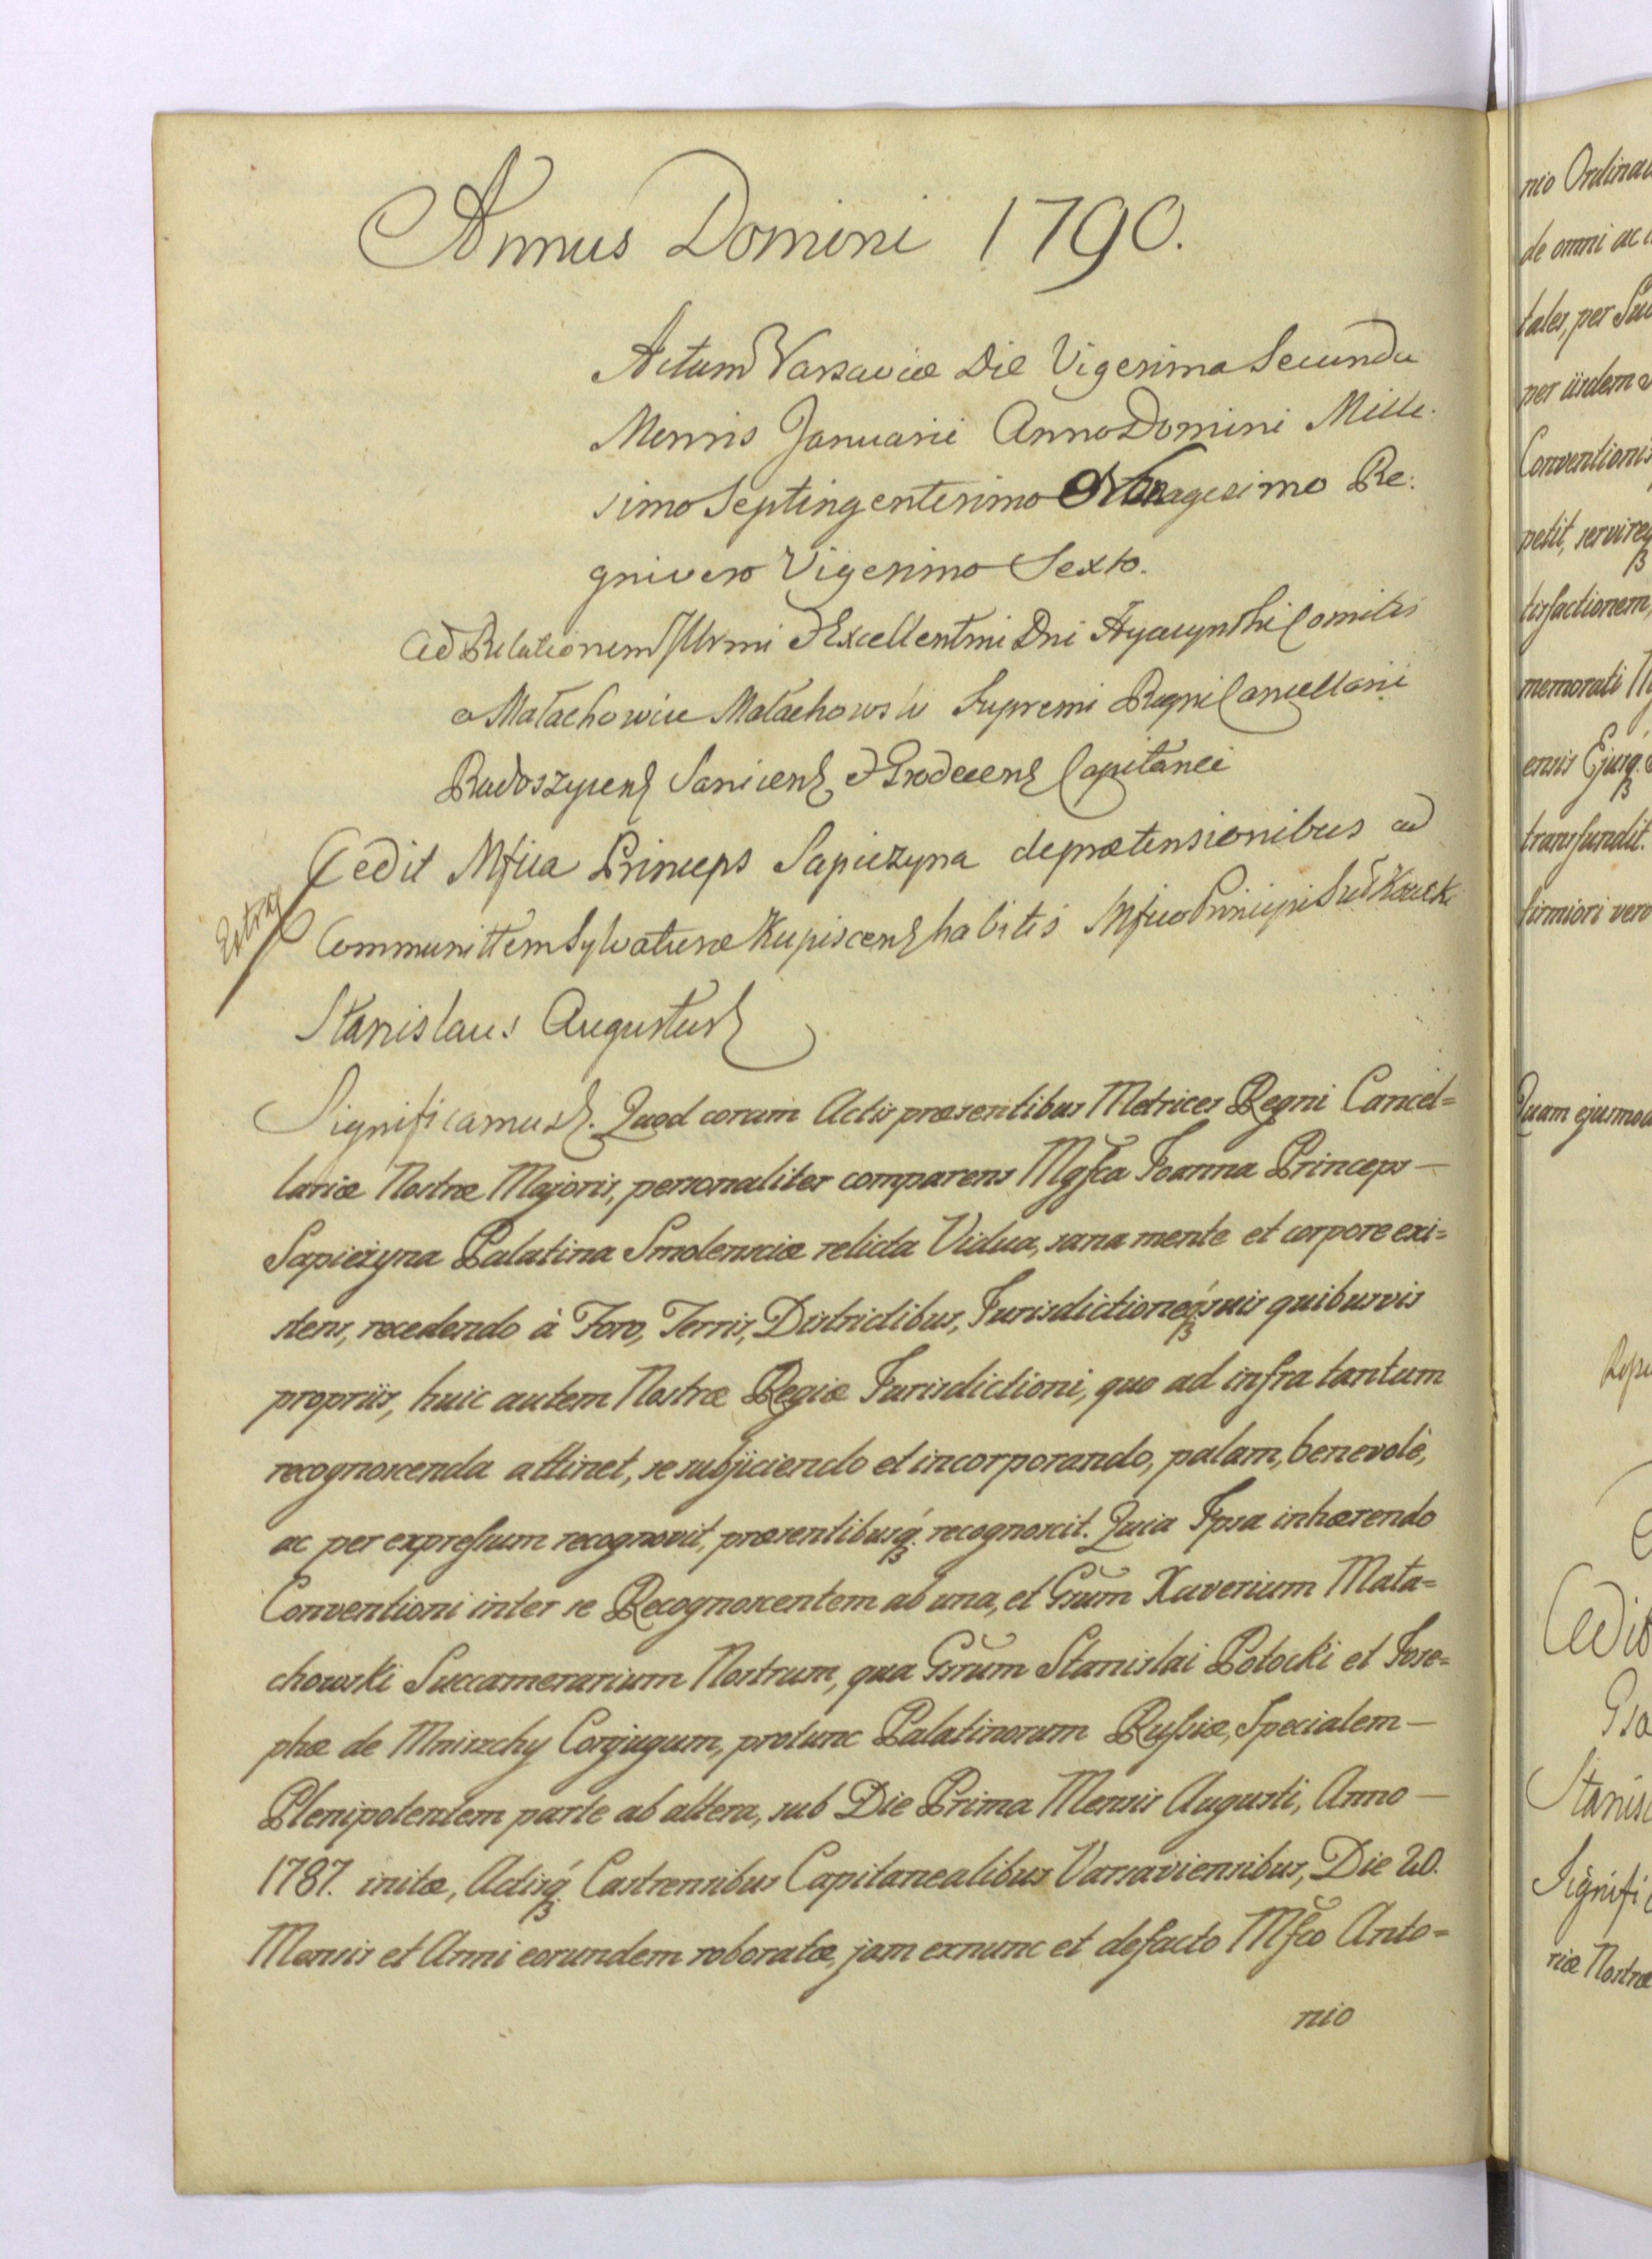 Annus Domini 1790.
Actum Varsaviæ Die Vigesima Secunda
Mensis Januarii Anno Domini Mille-
simo Septingentesimo Nonagesimo Re-
gni vero Vigesimo Sexto.
Ad Relationem Illrmi & Excellentmi Dni Hyacynthi Comitis
a Małachowice Małachowski Supremi Regni Cancellarii
Radoszycens Sanicens & Grodecens Capitanei
Extrad
Cedit Mfica Princeps Sapieżyna de prætensionibus ad
Communittem Sylvaturæ Kupiscens habitis Mfico Principi
Stanislaus Augustus
Significamus. Quod coram Actis præsentibus Metrices Regni Cancel=
lariæ Nostræ Majoris, personaliter comparens Mgfca Joanna Princeps —
Sapieżyna Palatina Smolensciæ relicta Vidua, sana mente et corpore exi=
stens, recedendo à Foro, Terris, Districtibus, Jurisdictioneq; suis quibusvis
propriis, huic autem Nostræ Regiæ Jurisdictioni, quo ad infra tantum
recognoscenda attinet, se subjiciendo et incorporando, palam, benevolè,
ac per expressum recognovit, præsentibusq; recognoscit. Quia Ipsa inhærendo
Conventioni inter se Recognoscentem ab una, et Gsum Xaverium Mała=
chowski Succamerarium Nostrum, qua Gsrum Stanislai Potocki et Jose=
phæ de Mniszchy Conjugum, protunc Palatinorum Russiæ, Specialem —
Plenipotentem parte ab altera, sub Die Prima Mensis Augusti, Anno —
1787. initæ, Actisq; Castrensibus Capitanealibus Varsaviensibus, Die 20.
Mensis et Anni eorundem roboratæ, jam exnunc et defacto Mfco Anto=
nio
nio Ordinat
de omni ac
tales, per Su
per iisdem
Conventionis
petit, servireq;
tisfactionem,
memorati
ensis Ejusq;
transfundit.
firmiori vero
Quam ejusmod
Cedit
Stanis
Signifi
riæ Nostræ